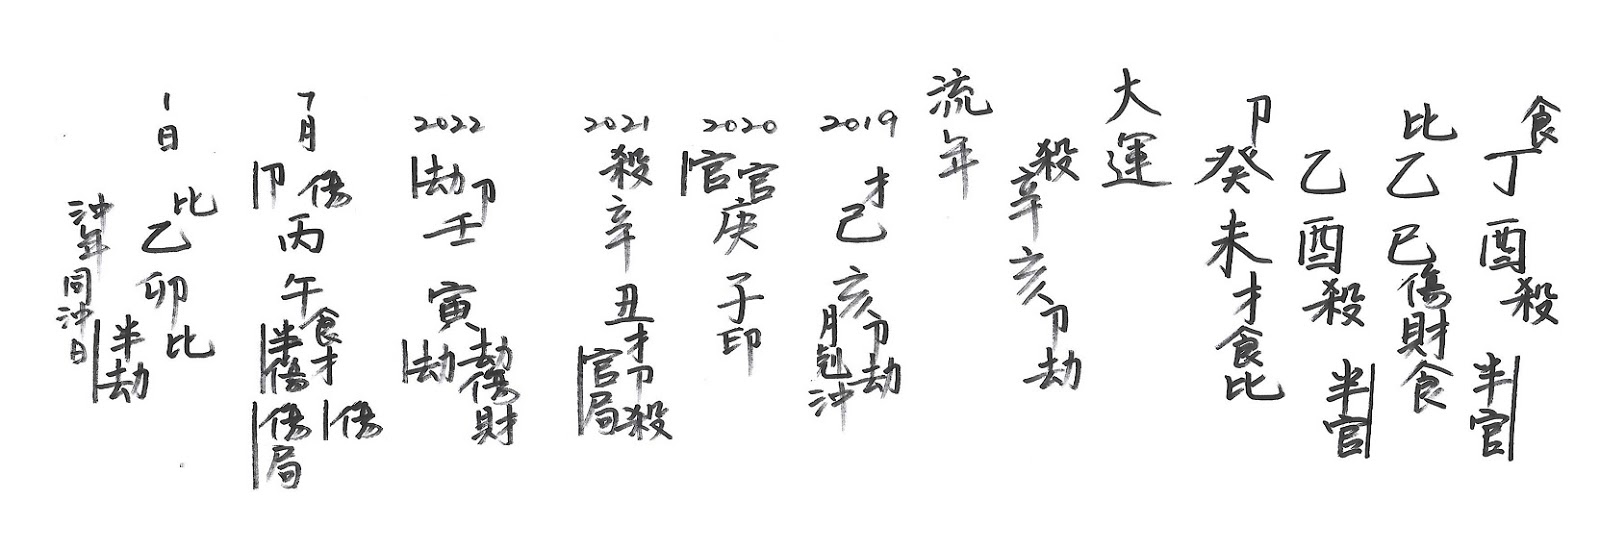 食
丁
酉
殺
半官
比
乙
巳
傷
財
食
乙
酉
殺
半官
卩
癸
未
才
食
比
大運
殺
辛
亥
卩
劫
流年
2019
才
己
亥
卩
劫
月包沖
2020
官
官
庚
子
印
2021
殺
辛
丑
才
卩
殺
官局
2022
劫
卩
壬
寅
劫
傷
財
劫
7月
卩
傷
丙
午
食
才
半傷
傷
傷局
1日
比
乙
卯
比
半劫
沖年同沖日